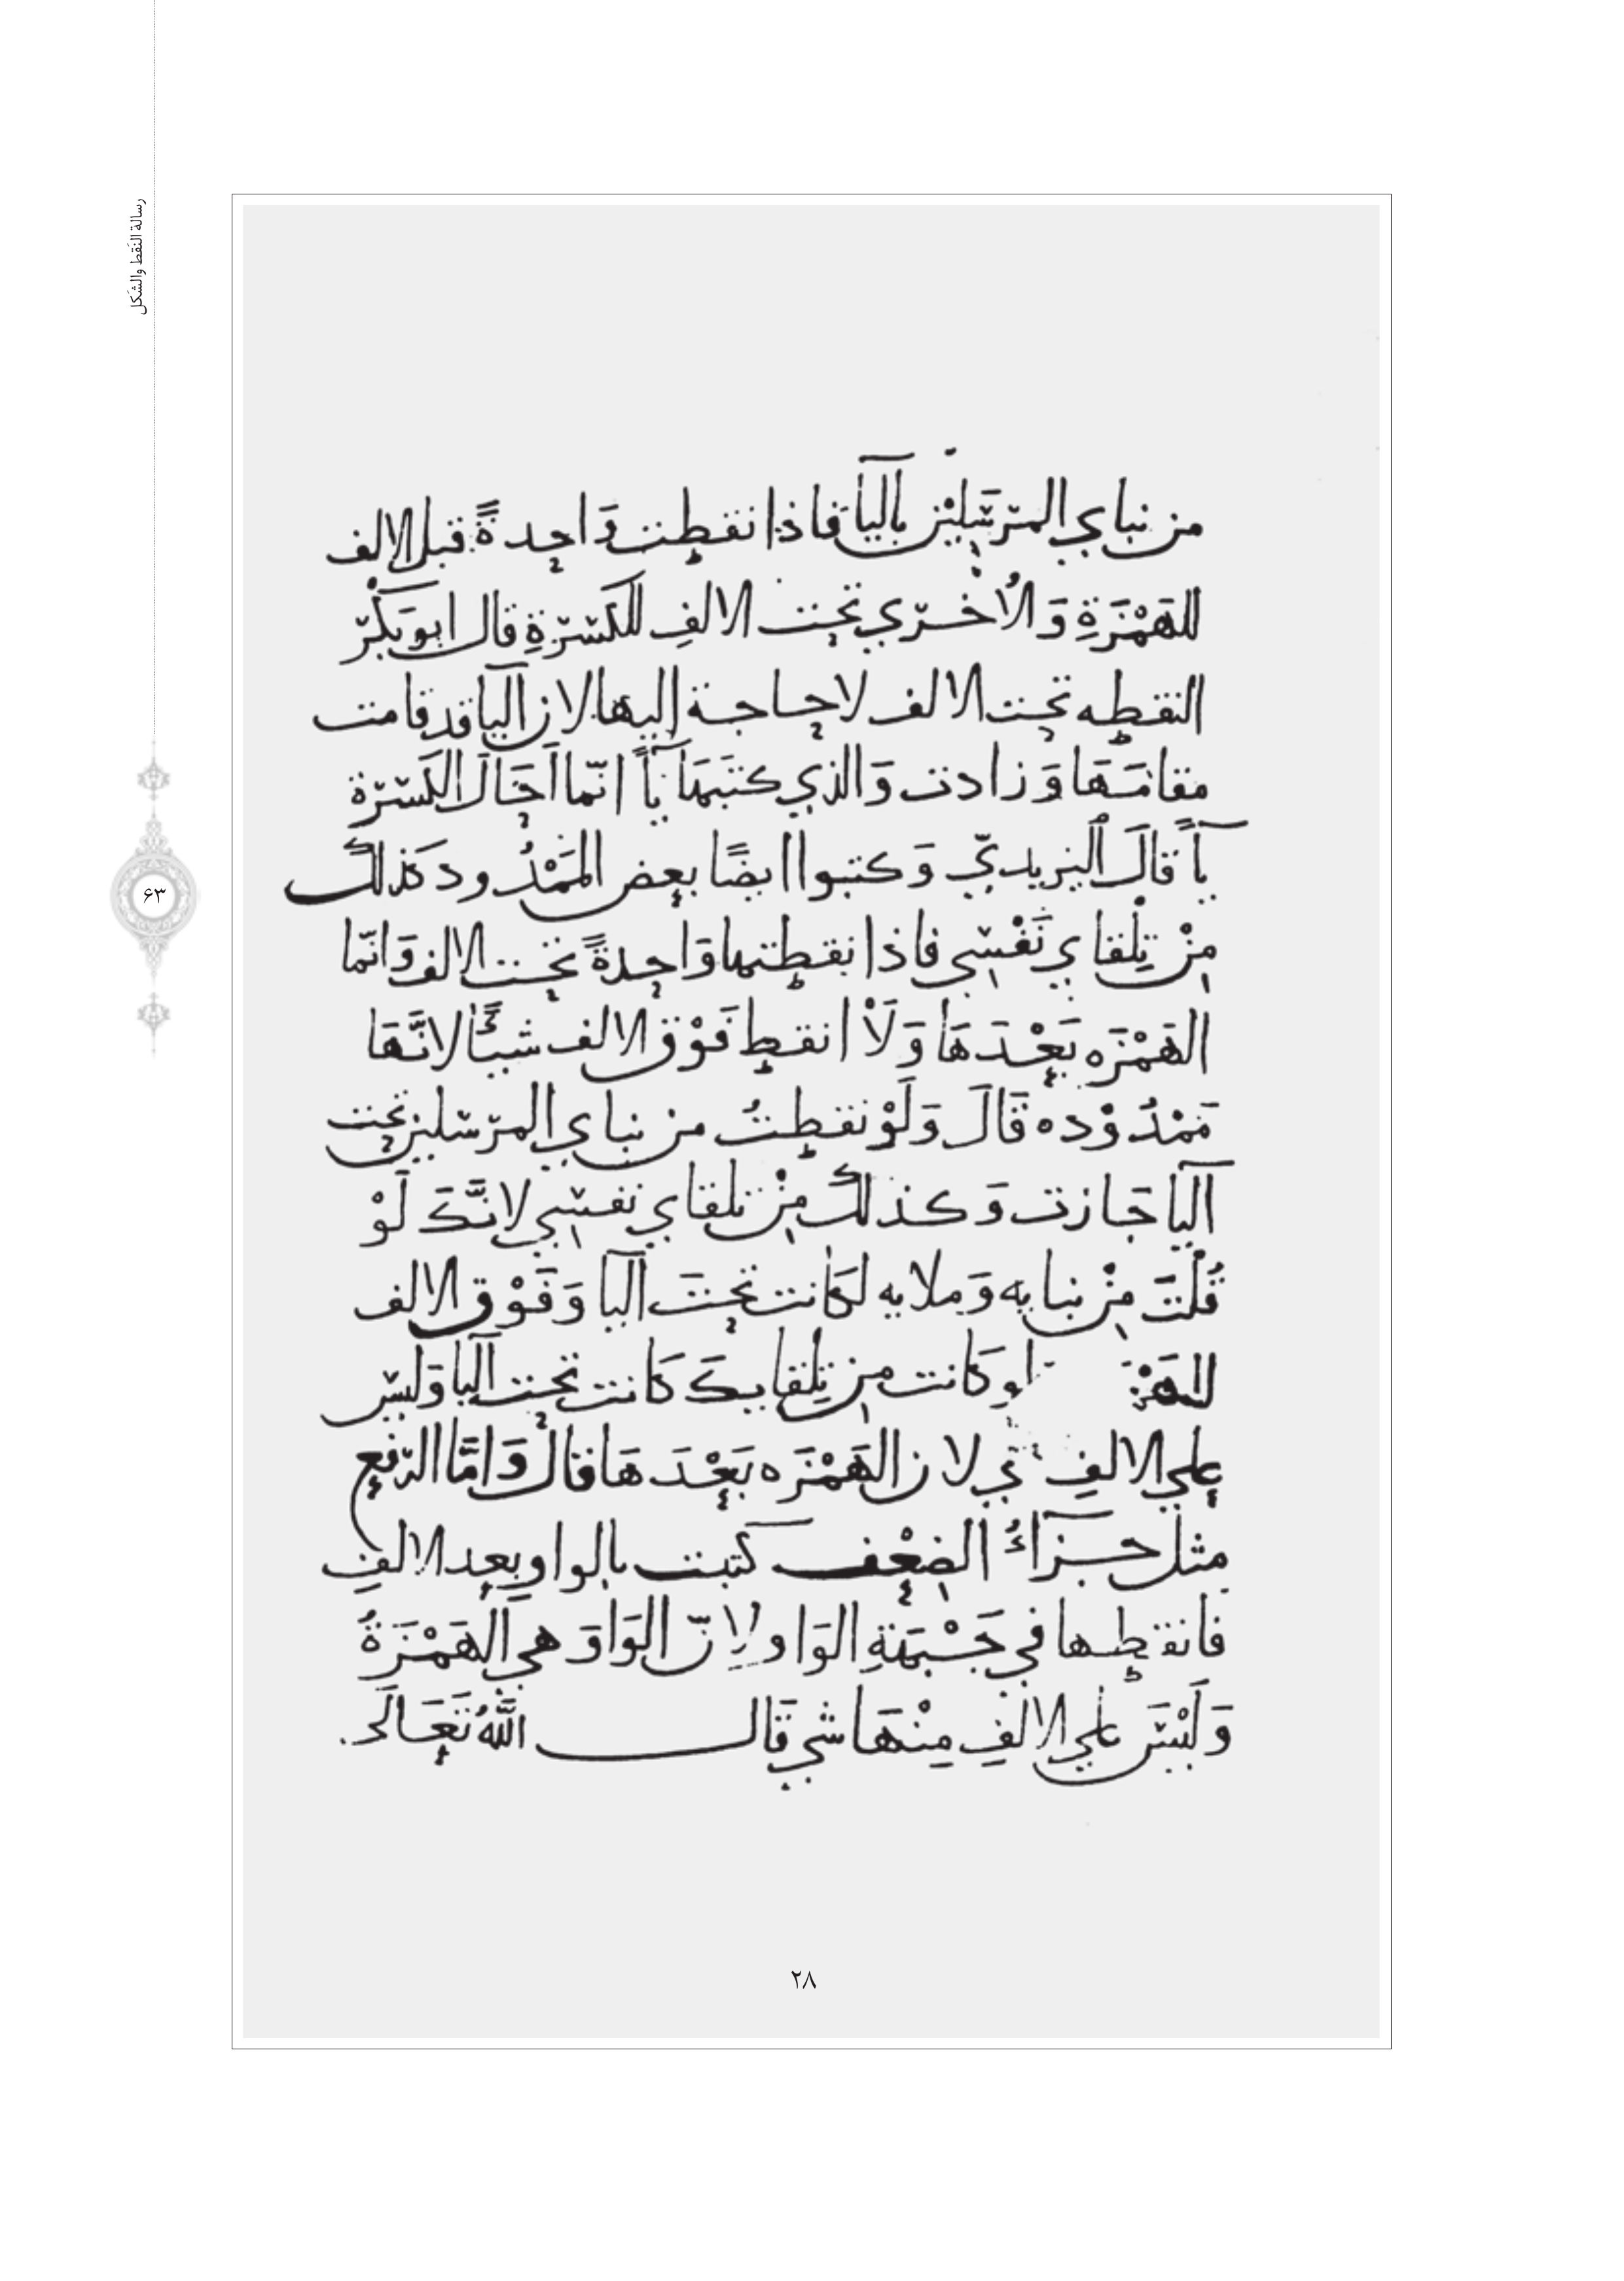 رسالة النقط والشكل
۶۳
من نباي المرسلين باليا فاذا نقطت واحدةً قبل الالف
للهمزة والاخرى تحت الالف للكسرة قال ابو بكر
النقطه تحت الالف لا حاجة إليها لان اليا قد قامت
مقامها وزادت والذي كتبها ياً انما احال الكسرة
ياً قال اليزيدي وكتبوا ايضًا بعض الممدود كذلك
من تلقاي نفسي فاذا نقطتها واحدةً تحت الالف وانما
الهمزه بعدها ولا انقط فوق الالف شيًا لانها
ممدوده قال ولو نقطت من نباي المرسلين تحت
اليا جازت وكذلك من تلقاي نفسي لانك لو
قلت من نبايه وملايه لكانت تحت اليا وفوق الالف
ولو كانت من تلقايك كانت تحت اليا وليس
على الالف لان الهمزه بعدها قال واما الرفع
مثل جزاءُ الضعف كتبت بالواو بعد الالف
فانقطها في جبهة الواو لان الواو هي الهمزة
وليس على الالف منها شي قال الله تعالى
٢٨